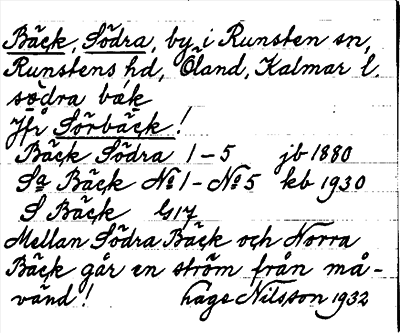 Bäck, Södra, by i Runsten sn,
Runstens hd, Öland, Kalmar l.
södra bäk
Jfr Sörbäck!
Bäck Södra 1-5 jb 1880
Sa Bäck No 1 - No 5 kb 1930
S Bäck G17
Mellan Södra Bäck och Norra
Bäck går en ström från må-
vänd! Hage Nilsson 1932